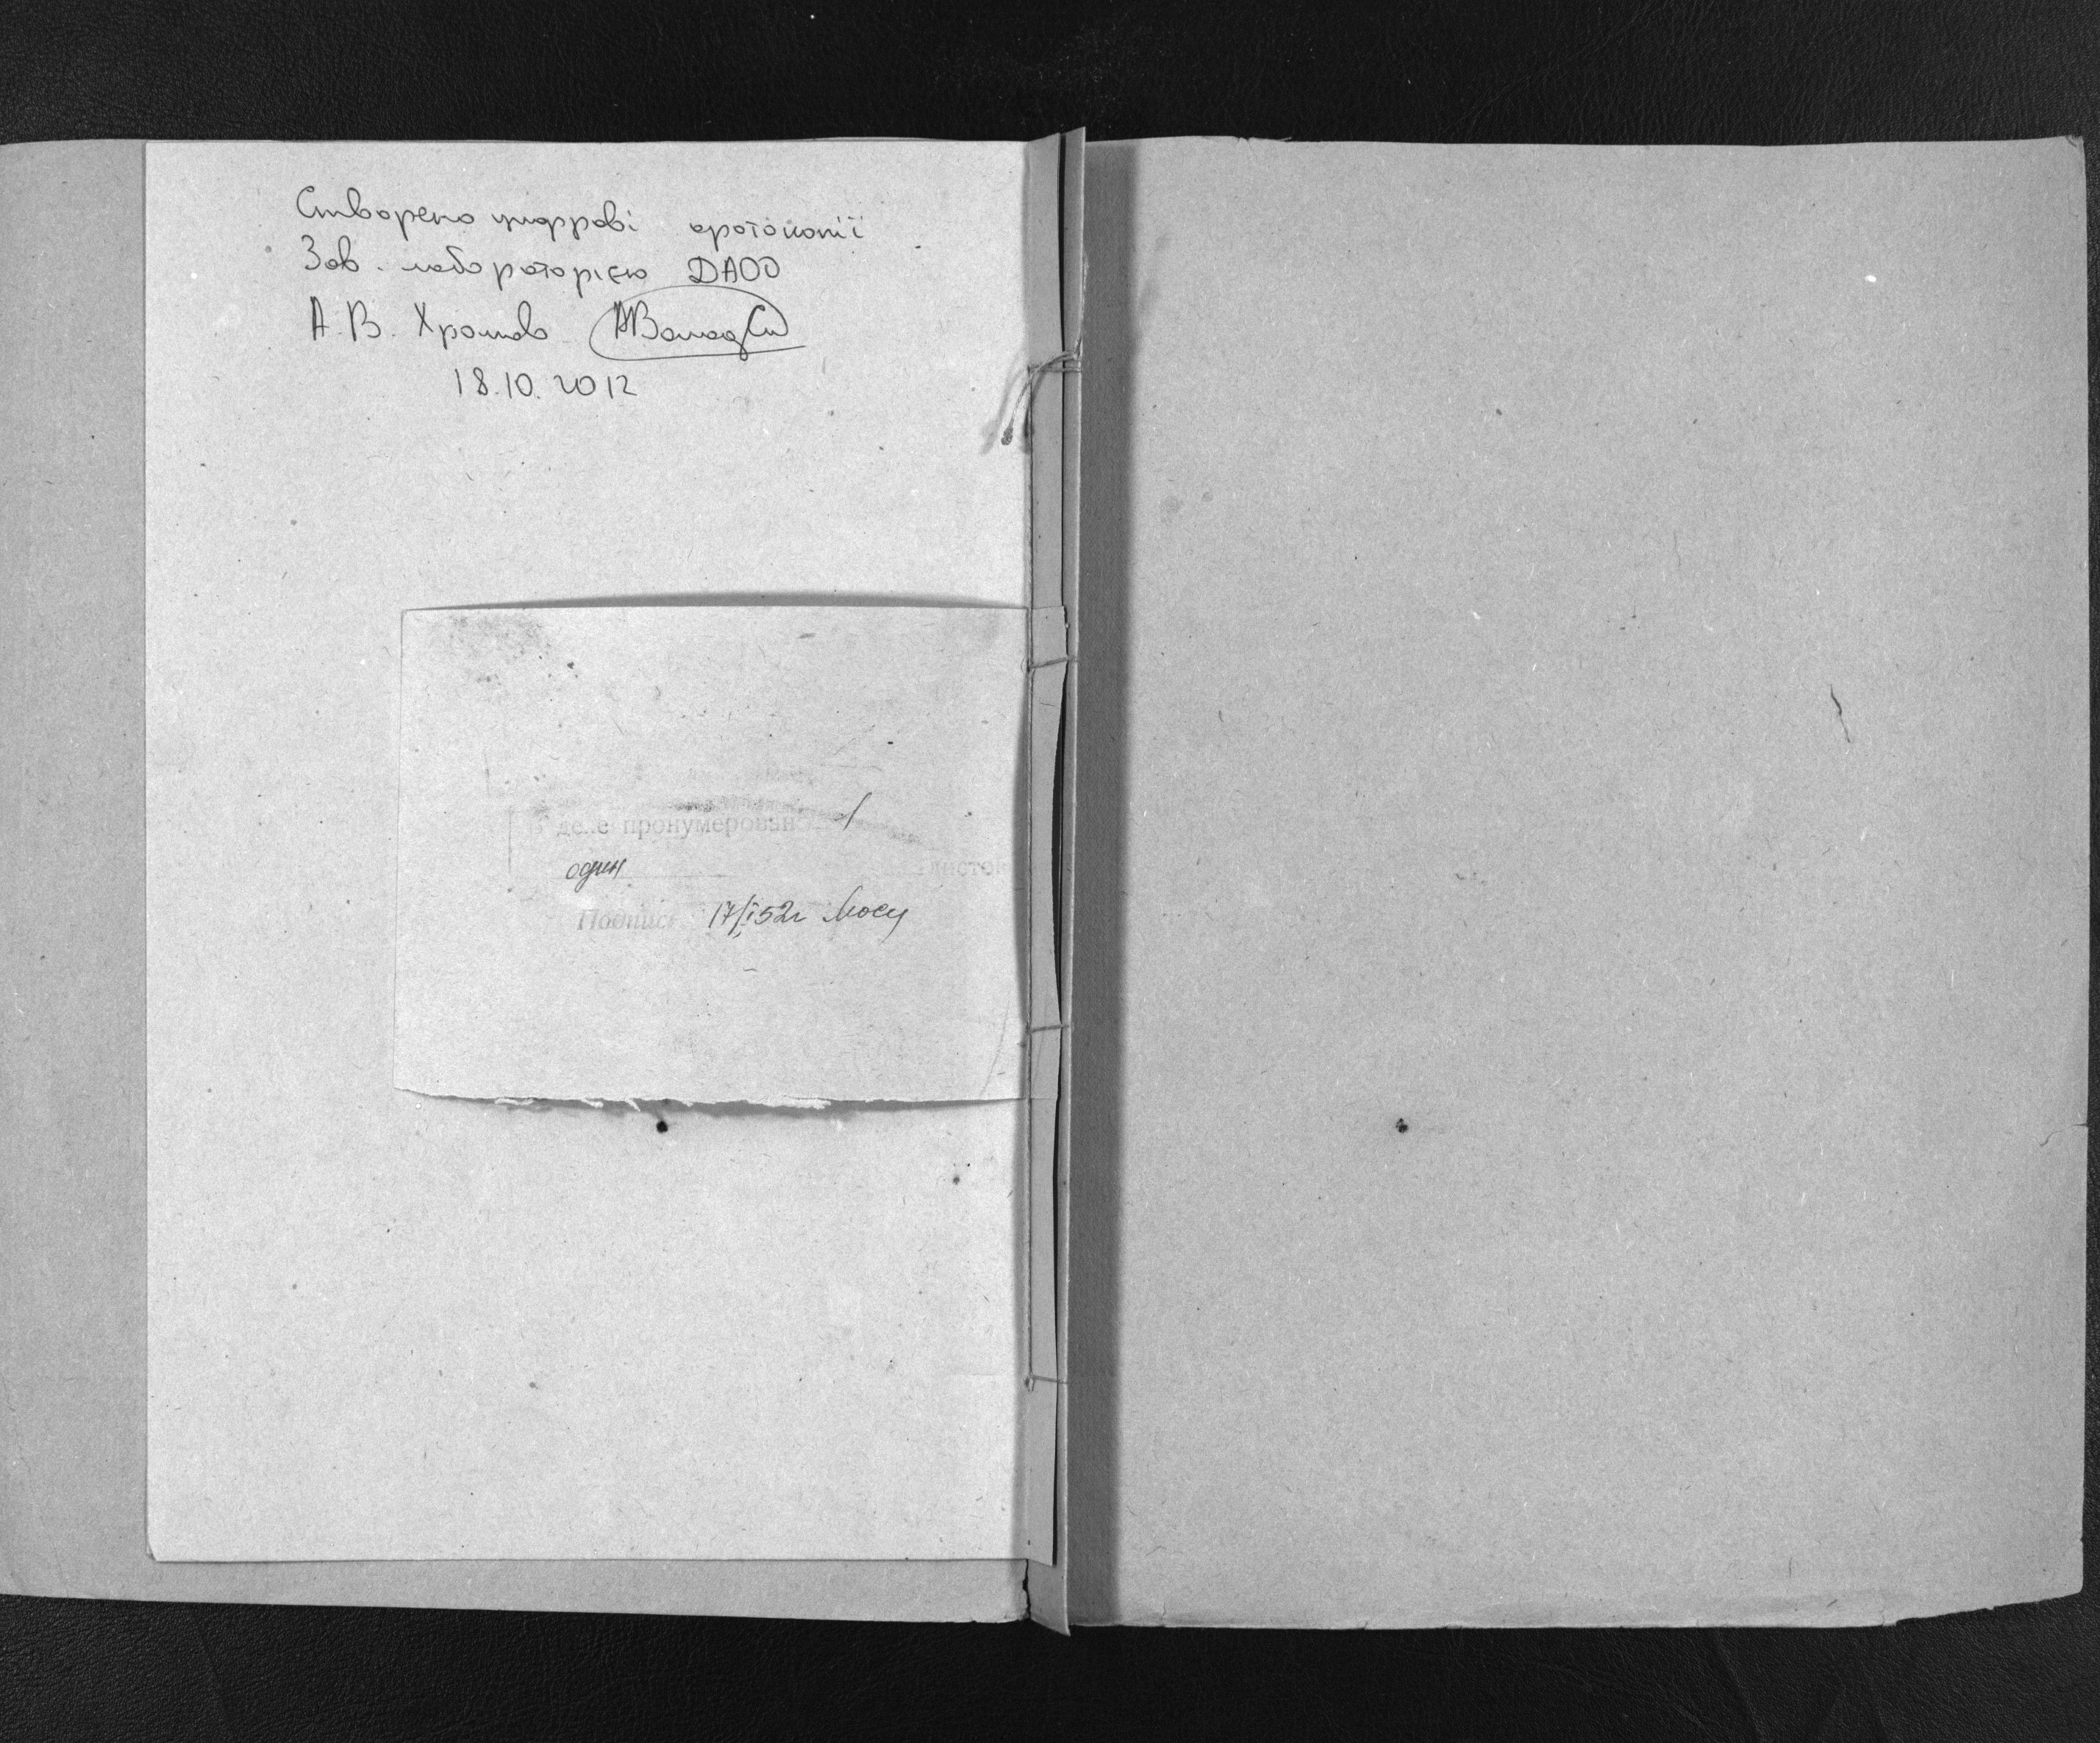 Створено цифрові фотокопії
Зав. лабораторією ДАОО
А.В. Хромов
18.10.2012
В деле пронумеровано 1
один листов
Подпись 17/I 52г